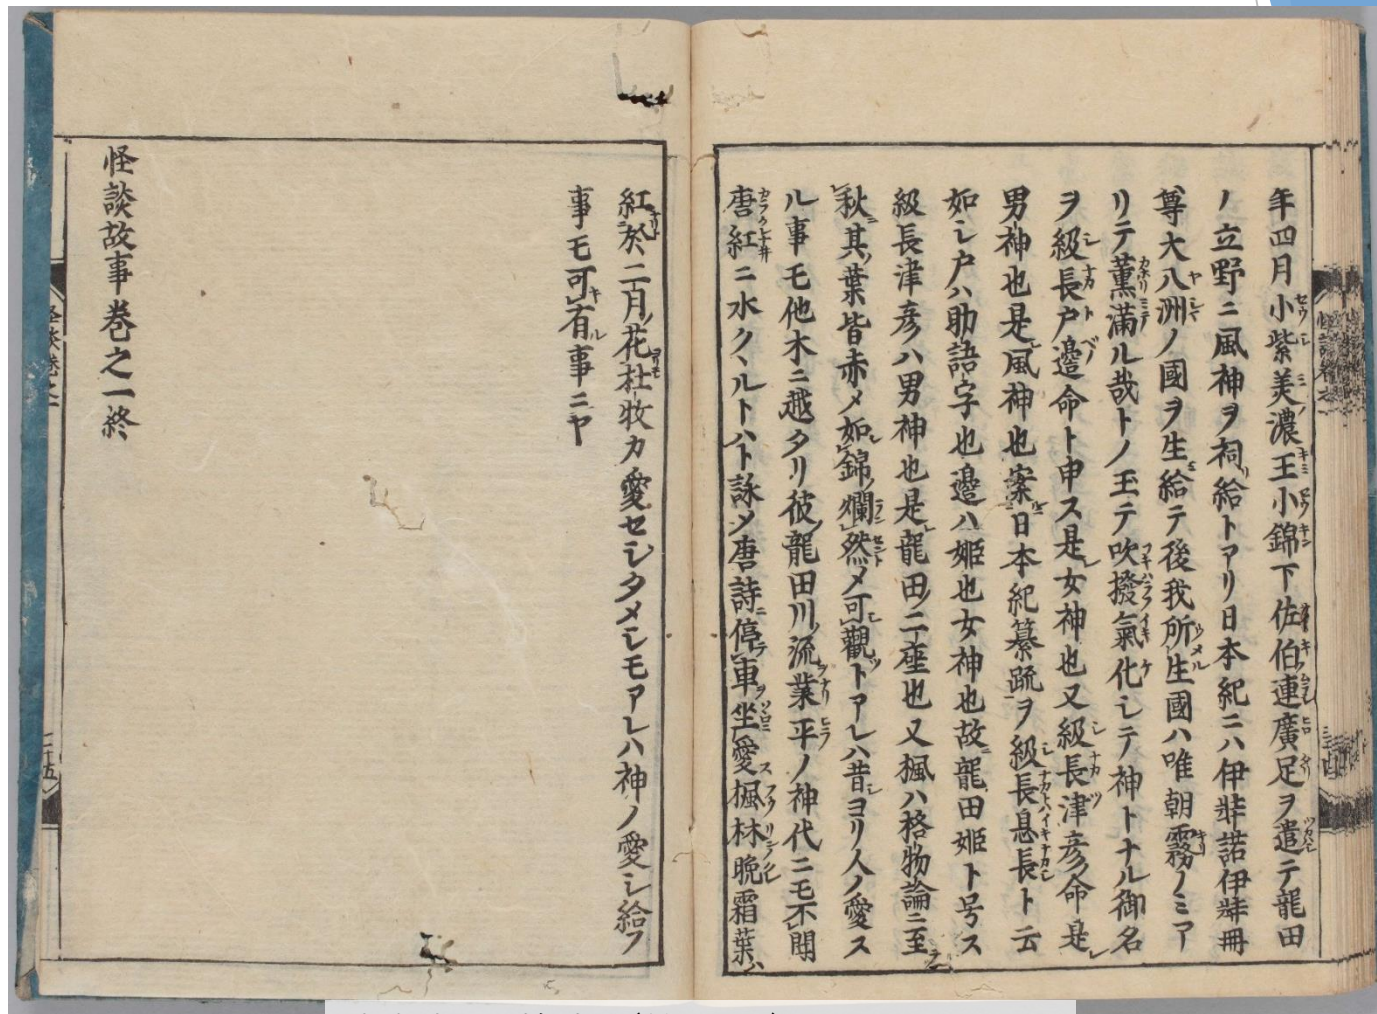 年四月小紫美濃王小錦下佐伯連廣足ヲ遣テ龍田
ノ立野ニ風神ヲ祠給トアリ日本紀ニハ伊弉諾伊弉冊
尊大八洲ノ國ヲ生給テ後我所生國ハ唯朝霧ノミア
リテ薫滿ル哉トノ玉テ吹撥氣化シテ神トナル御名
ヲ級長戸邉命ト申ス是女神也又級長津彦命是
男神也是風神也案日本紀纂疏ヲ級長息長ト云
如シ戸ハ助語字也邉ハ姫也女神也故龍田姫ト号ス
級長津彦ハ男神也是龍田ノ二座也又楓ハ格物論ニ至
秋其葉皆赤メ如錦ノ爛然メ可觀トアレハ昔ヨリ人ノ愛ス
ル事モ他木ニ越タリ彼龍田川ノ流業平ノ神代ニモ不聞
唐紅ニ水クヽルトハト詠メ唐詩ニ停車坐愛楓林晩霜葉ハ
紅於二月ノ花杜牧カ愛セシタメシモアレハ神ノ愛シ給フ
事モ可有事ニヤ
怪談故事巻之一終
二十五